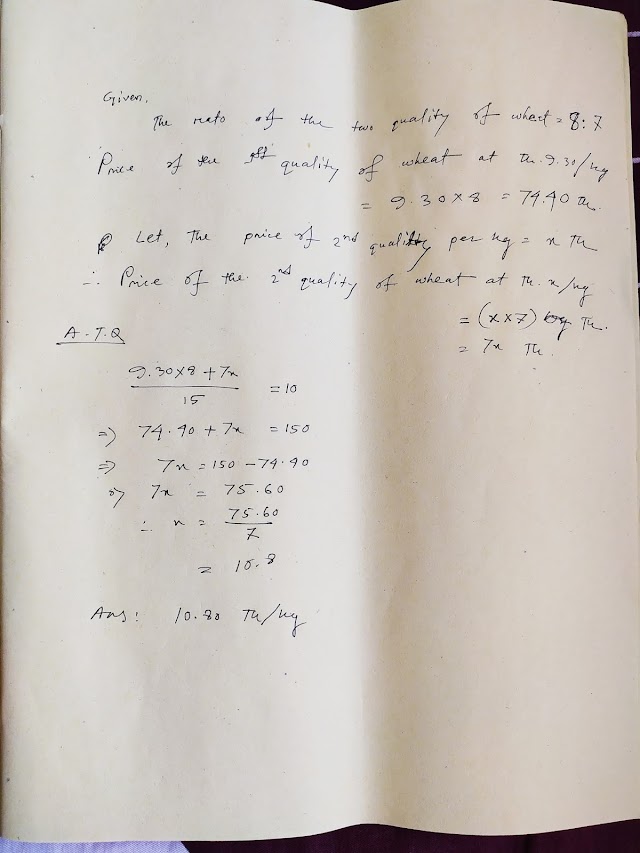 Given,
The rato of the two quality of wheat = 8:7
Price of the 1st quality of wheat at Tk. 9.30/kg
= 9.30 x 8 = 74.40 Tk.
Let, The price of 2nd quality per kg = x Tk
∴ Price of the 2nd quality of wheat at Tk. x/kg
= (x x 7) Tk.
= 7x Tk.
A.T.Q
9.30x8 + 7x
15
= 10
=> 74.40 + 7x = 150
=> 7x = 150 - 74.40
or 7x = 75.60
∴ x = 75.60
7
= 10.8
Ans: 10.80 Tk/kg